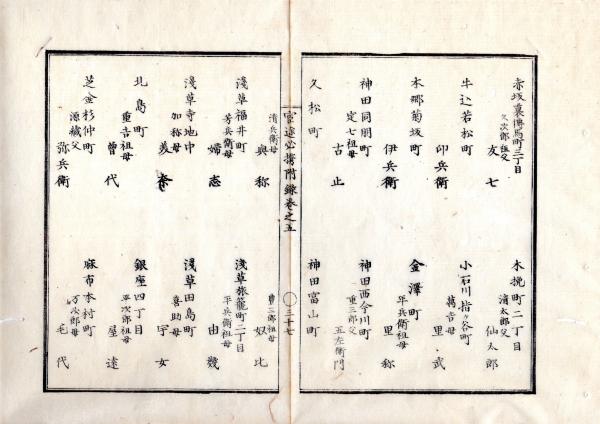 赤坂裏傳馬町三丁目
久次郎祖父
友七
牛込若松町
卯兵衛
本郷菊坂町
伊兵衛
神田同朋町
定七祖母
古止
久松町
木挽町二丁目
清太郎父
仙太郎
小石川指ヶ谷町
萬吉母
里武
金澤町
平兵衛祖母
里称
神田西今川町
重三郎父
五左衛門
神田富山町
官途必携附録巻之五
三十七
清兵衛母
與称
淺草福井町
芳兵衛母
婦志
淺草寺地中
加称母
北島町
重吉祖母
曽代
芝金杉仲町
源蔵父
弥兵衛
奴比
淺草旅籠町二丁目
平兵衛祖母
由幾
淺草田島町
喜助母
宇女
銀座四丁目
平次郎祖母
屋遠
麻布本村町
万次郎母
毛代